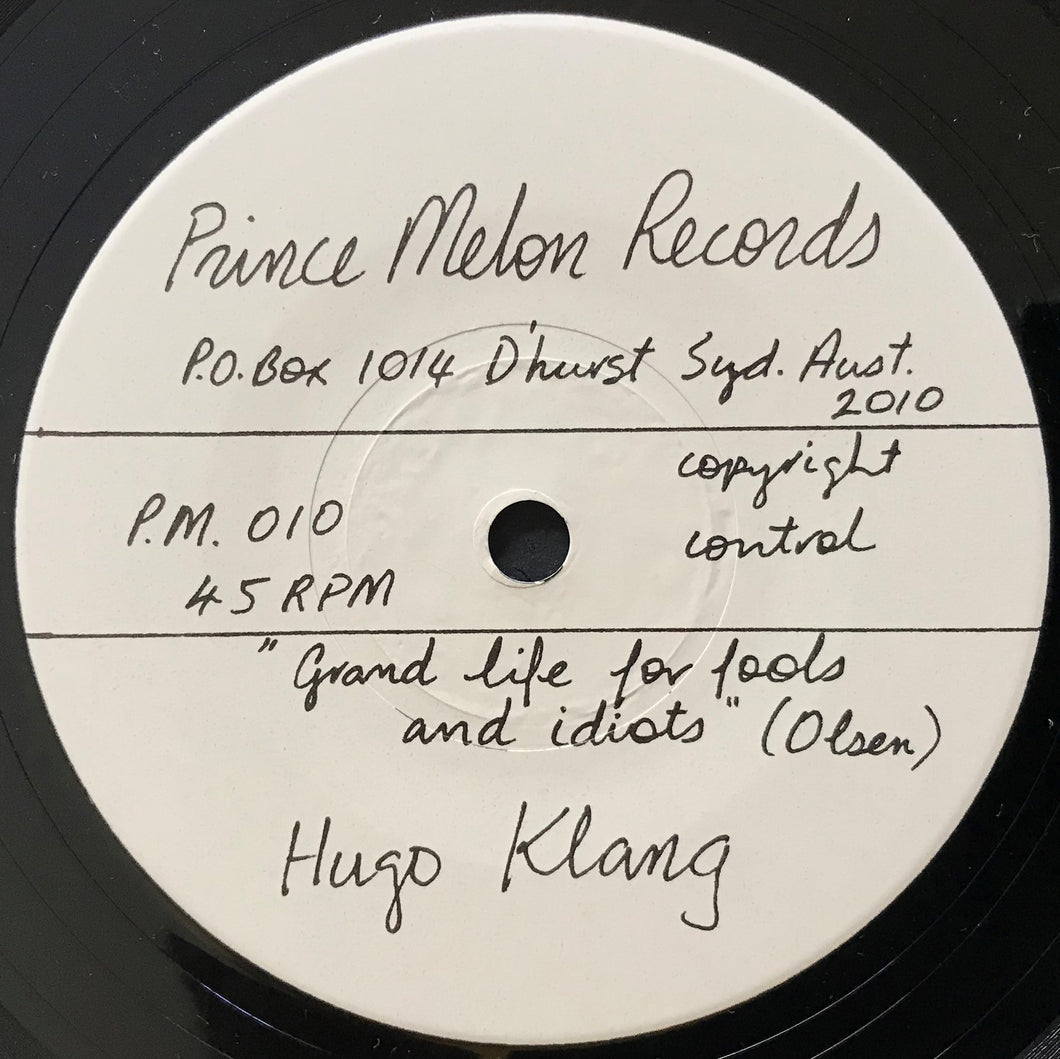 Prince Melon Records
P.O. Box 1014 D'hurst Syd. Aust.
2010
copyright
control
P.M. 010
45 RPM
"Grand life for fools
and idiots" (Olsen)
Hugo Klang